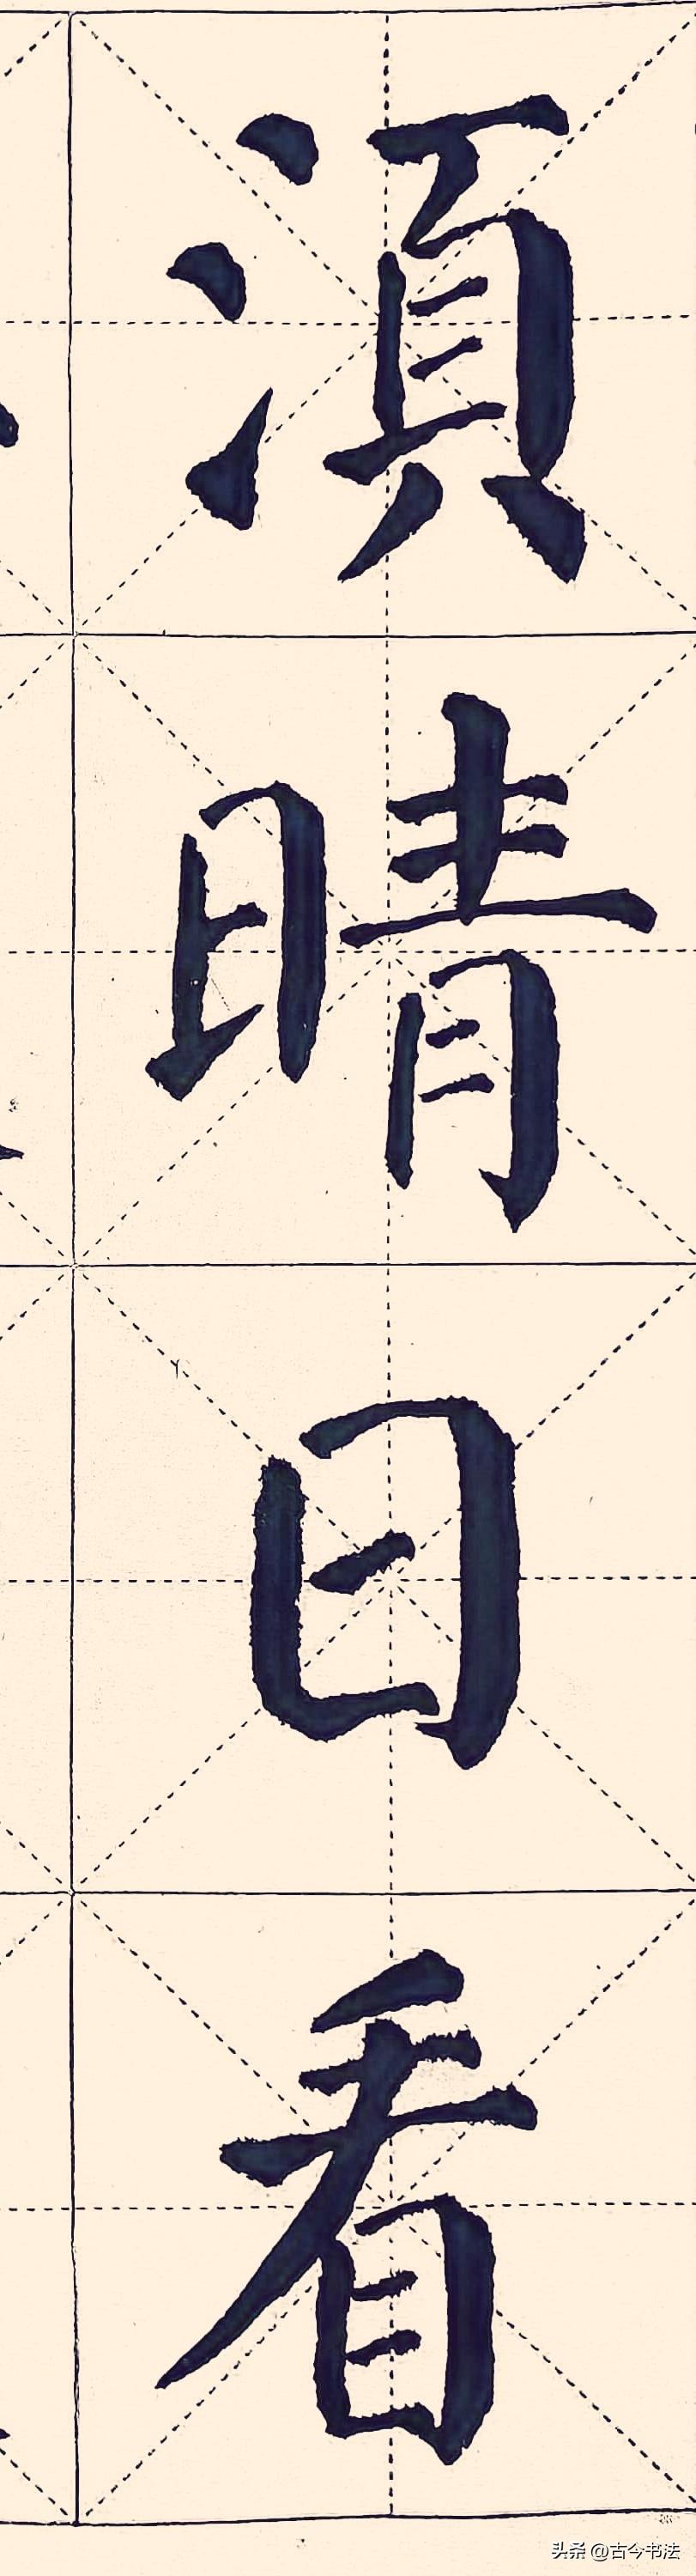 湏晴日看
头条 @古今书法